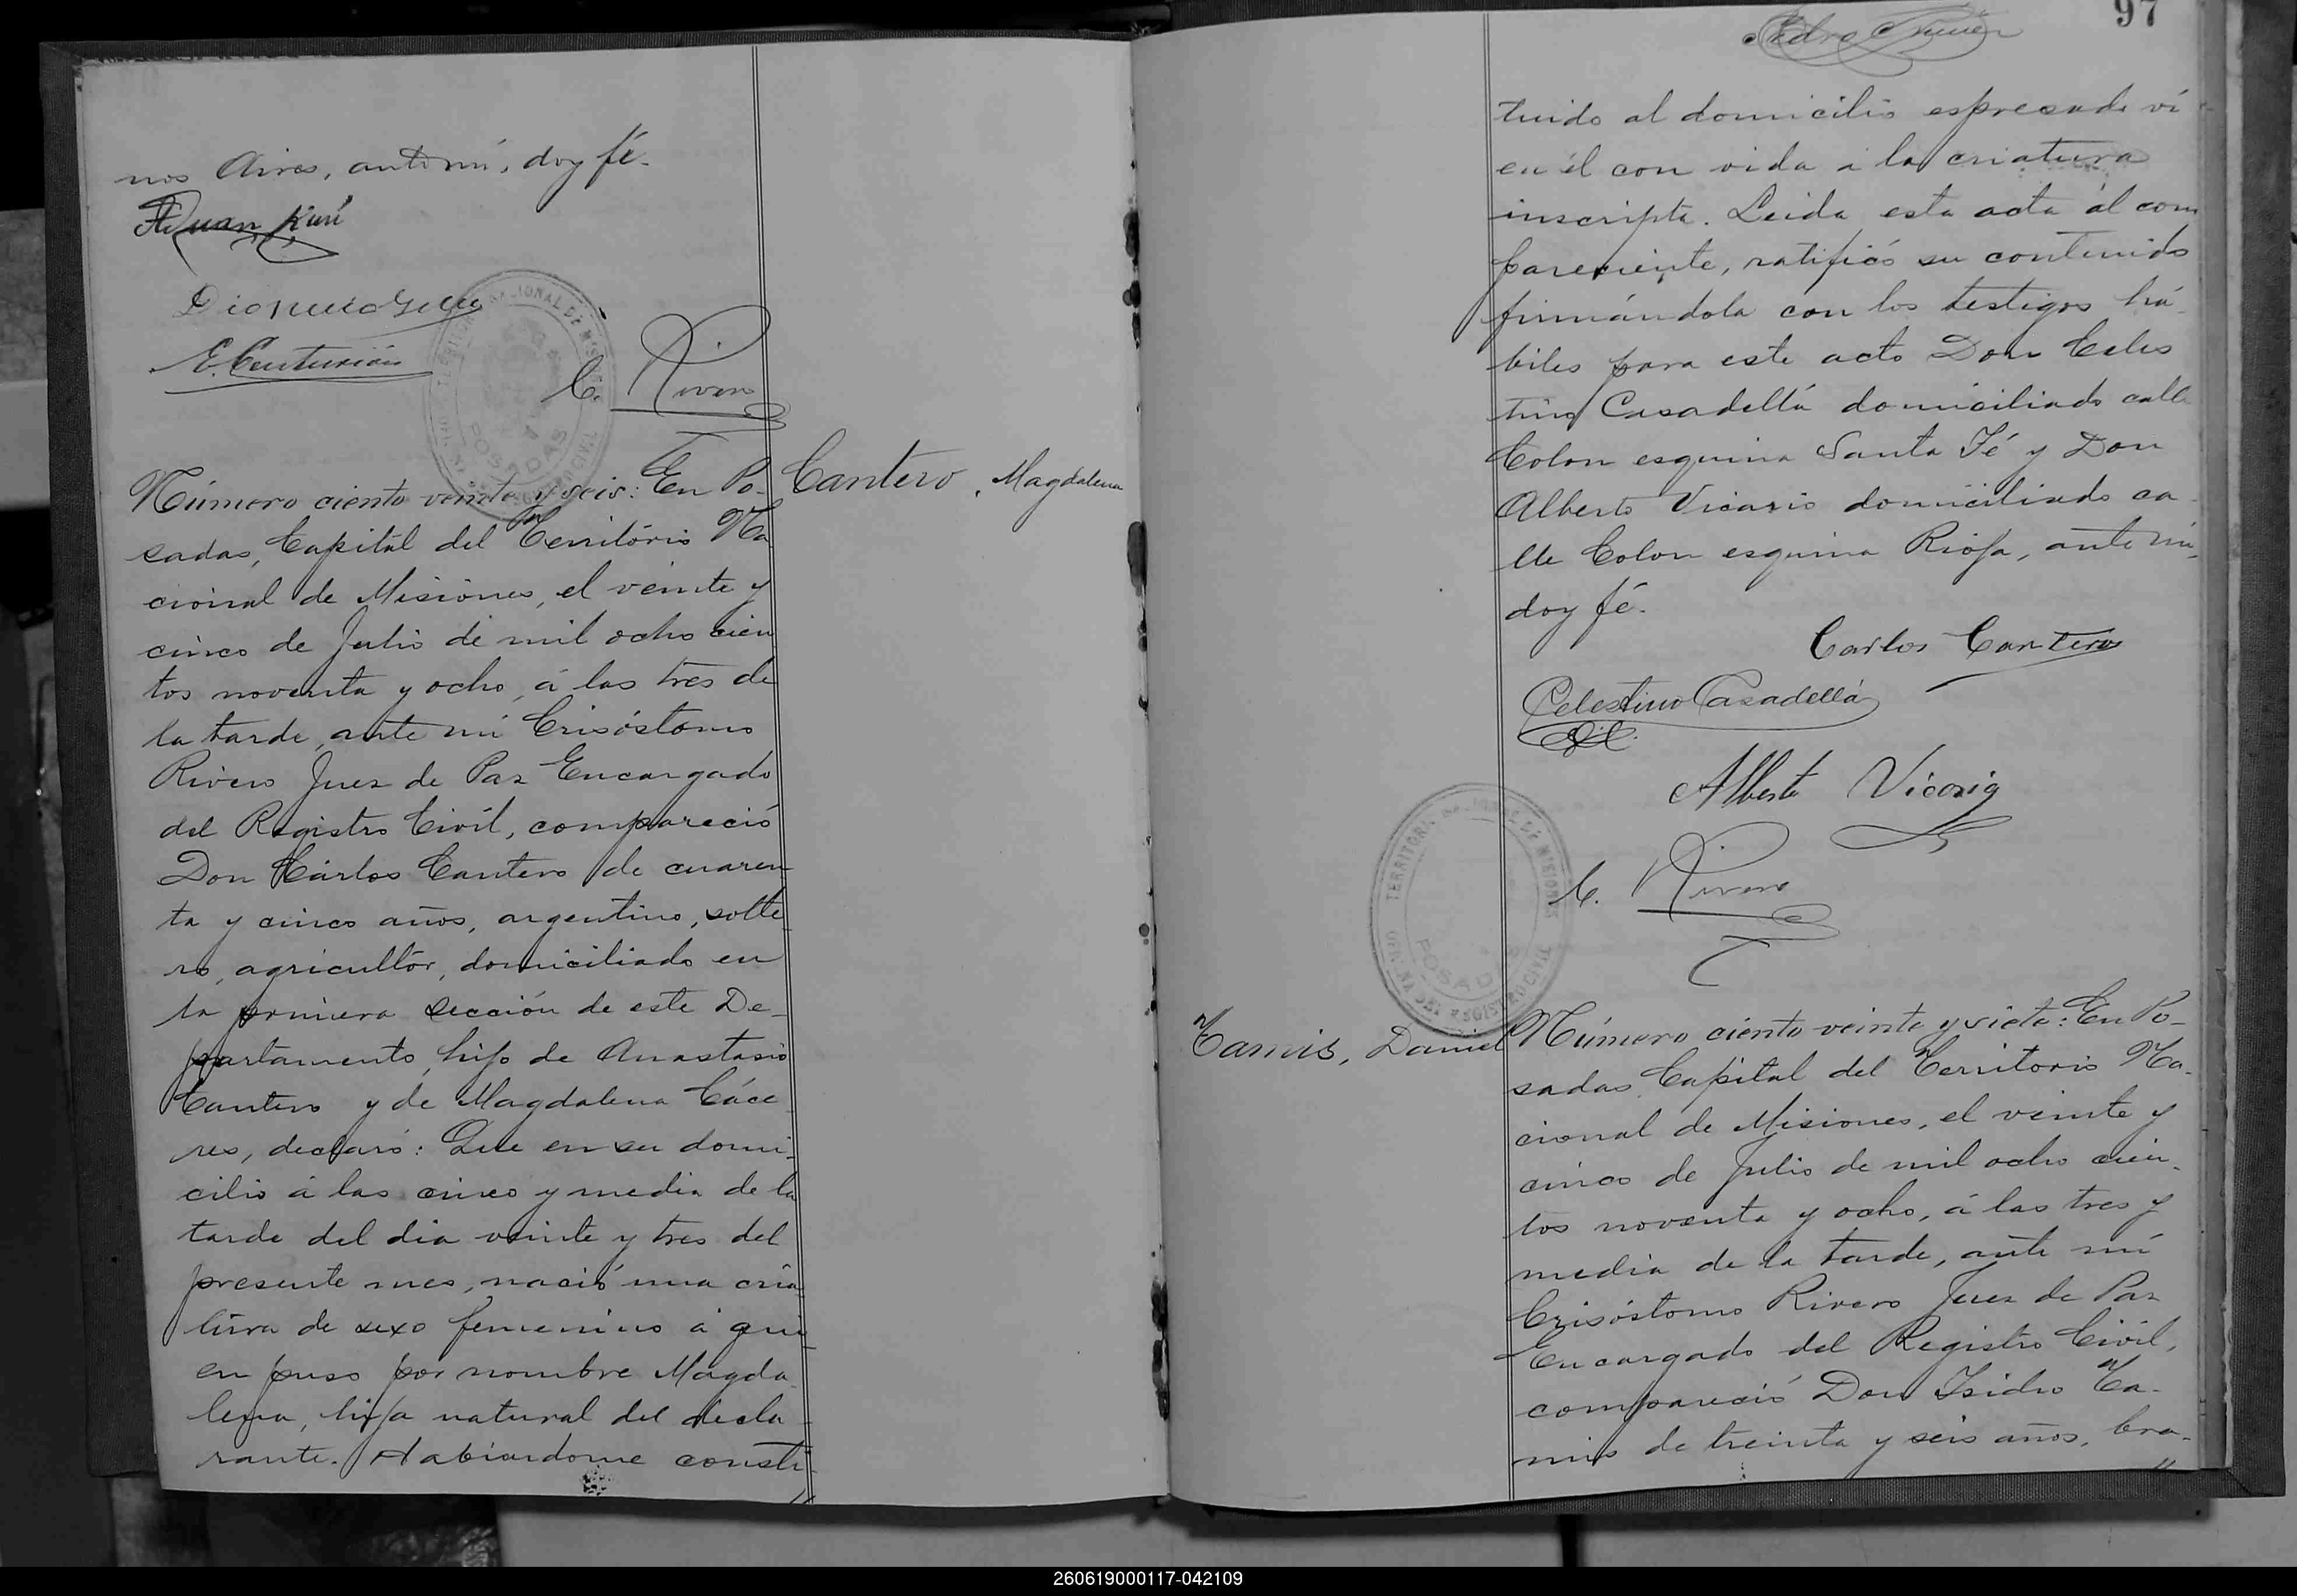 nos Aires, ante mí, doy fé.
E. Centurión
C. Rivero
TERRITORIO NACIONAL DE MISIONES
POSADAS
OFICINA DEL REGISTRO CIVIL
Cantero, Magdalena
Número ciento veinte y seis: En Po-
sadas, Capital del Território Na
cional de Misiones, el veinte y
cinco de Julio de mil ocho cien
tos noventa y ocho, á las tres de
la tarde, ante mí Crisóstomo
Rivero Juez de Paz Encargado
del Registro Civil, compareció
Don Cárlos Cantero de cuaren-
ta y cinco años, argentino, solte
ro, agricultór, domiciliado en
la primera sección de este De-
partamento, hijo de Anastasio
Cantero y de Magdalena Cáce
res, declaró: Que en su domi-
cilio á las cinco y media de la
tarde del dia veinte y tres del
presente mes, nació una cria
tura de sexo femenino á qui
en puso por nombre Magda
lena, hija natural del decla-
rante. Habiendome consti-
97
tuido al domicilio espresado ví
en él con vida á la criatura
inscripta. Leida esta acta al com
pareciente, ratificó su contenido
firmándola con los testigos há-
biles para este acto Don Celes
tino Casadellá domiciliado calle
Colon esquina Santa Fé y Don
Alberto Vicario domiciliado ca-
lle Colon esquina Rioja, ante mí,
doy fé.
Carlos Cantero
Celestino Casadellá
Alberto Vicario
C. Rivero
TERRITORIO NACIONAL DE MISIONES
POSADAS
OFICINA DEL REGISTRO CIVIL
Tamis, Daniel
Número ciento veinte y siete: En Po-
sadas, Capital del Territorio Na-
cional de Misiones, el veinte y
cinco de Julio de mil ocho cien-
tos noventa y ocho, á las tres y
media de la tarde, ante mí
Crisóstomo Rivero Juez de Paz
Encargado del Registro Civil,
compareció Don Isidro Ta-
mis de treinta y seis años, bra-
260619000117-042109